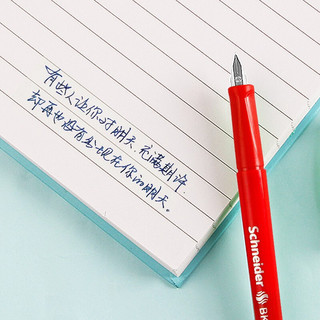 有些人让你对明天充满期许
却再也没有出现在你的明天。
Schneider
BK